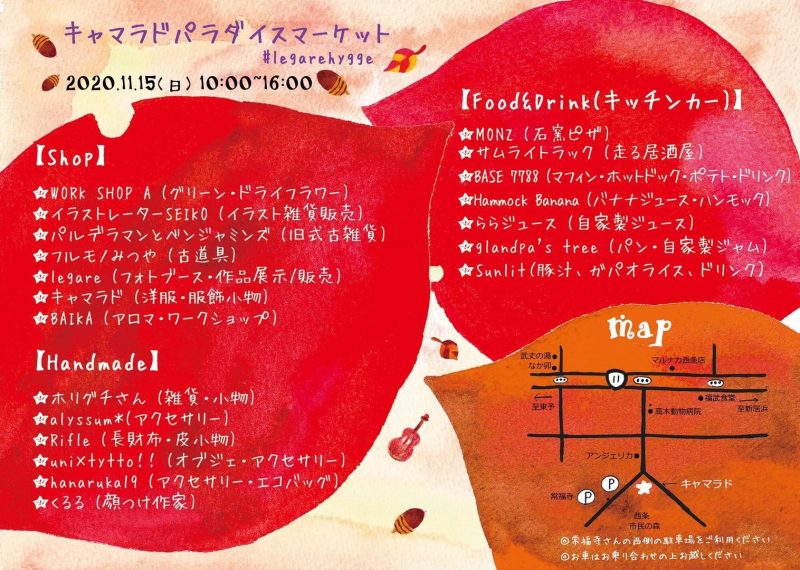 キャマラドパラダイスマーケット
#legarehygge
2020.11.15(日) 10:00~16:00
【Shop】
☆WORK SHOP A (グリーン・ドライフラワー)
☆イラストレーターSEIKO (イラスト雑貨販売)
☆パルデラマンとベンジャミンズ (旧式古雑貨)
☆フルモノみつや (古道具)
☆legare (フォトブース・作品展示/販売)
☆キャマラド (洋服・服飾小物)
☆BAIKA (アロマ・ワークショップ)
【Handmade】
☆ホリグチさん (雑貨・小物)
☆alyssum*(アクセサリー)
☆Rifle (長財布・皮小物)
☆uni×tytto!! (オブジェ・アクセサリー)
☆hanaruka19 (アクセサリー・エコバッグ)
☆くるる (顔つけ作家)
【Food&Drink(キッチンカー)】
☆MONZ (石窯ピザ)
☆サムライトラック (走る居酒屋)
☆BASE 7788 (マフィン・ホットドック・ポテト・ドリンク)
☆Hammock Banana (バナナジュース・ハンモック)
☆ららジュース (自家製ジュース)
☆glandpa's tree (パン・自家製ジャム)
☆Sunlit(豚汁、ガパオライス、ドリンク)
map
武丈の湯
なか卯
マルナカ西条店
11
至東予
福武食堂
至新居浜
高木動物病院
アンジェリカ
キャマラド
常福寺
P
P
西条
市民の森
◎常福寺さんの西側の駐車場をご利用ください
◎お車はお乗り合わせの上お越しください